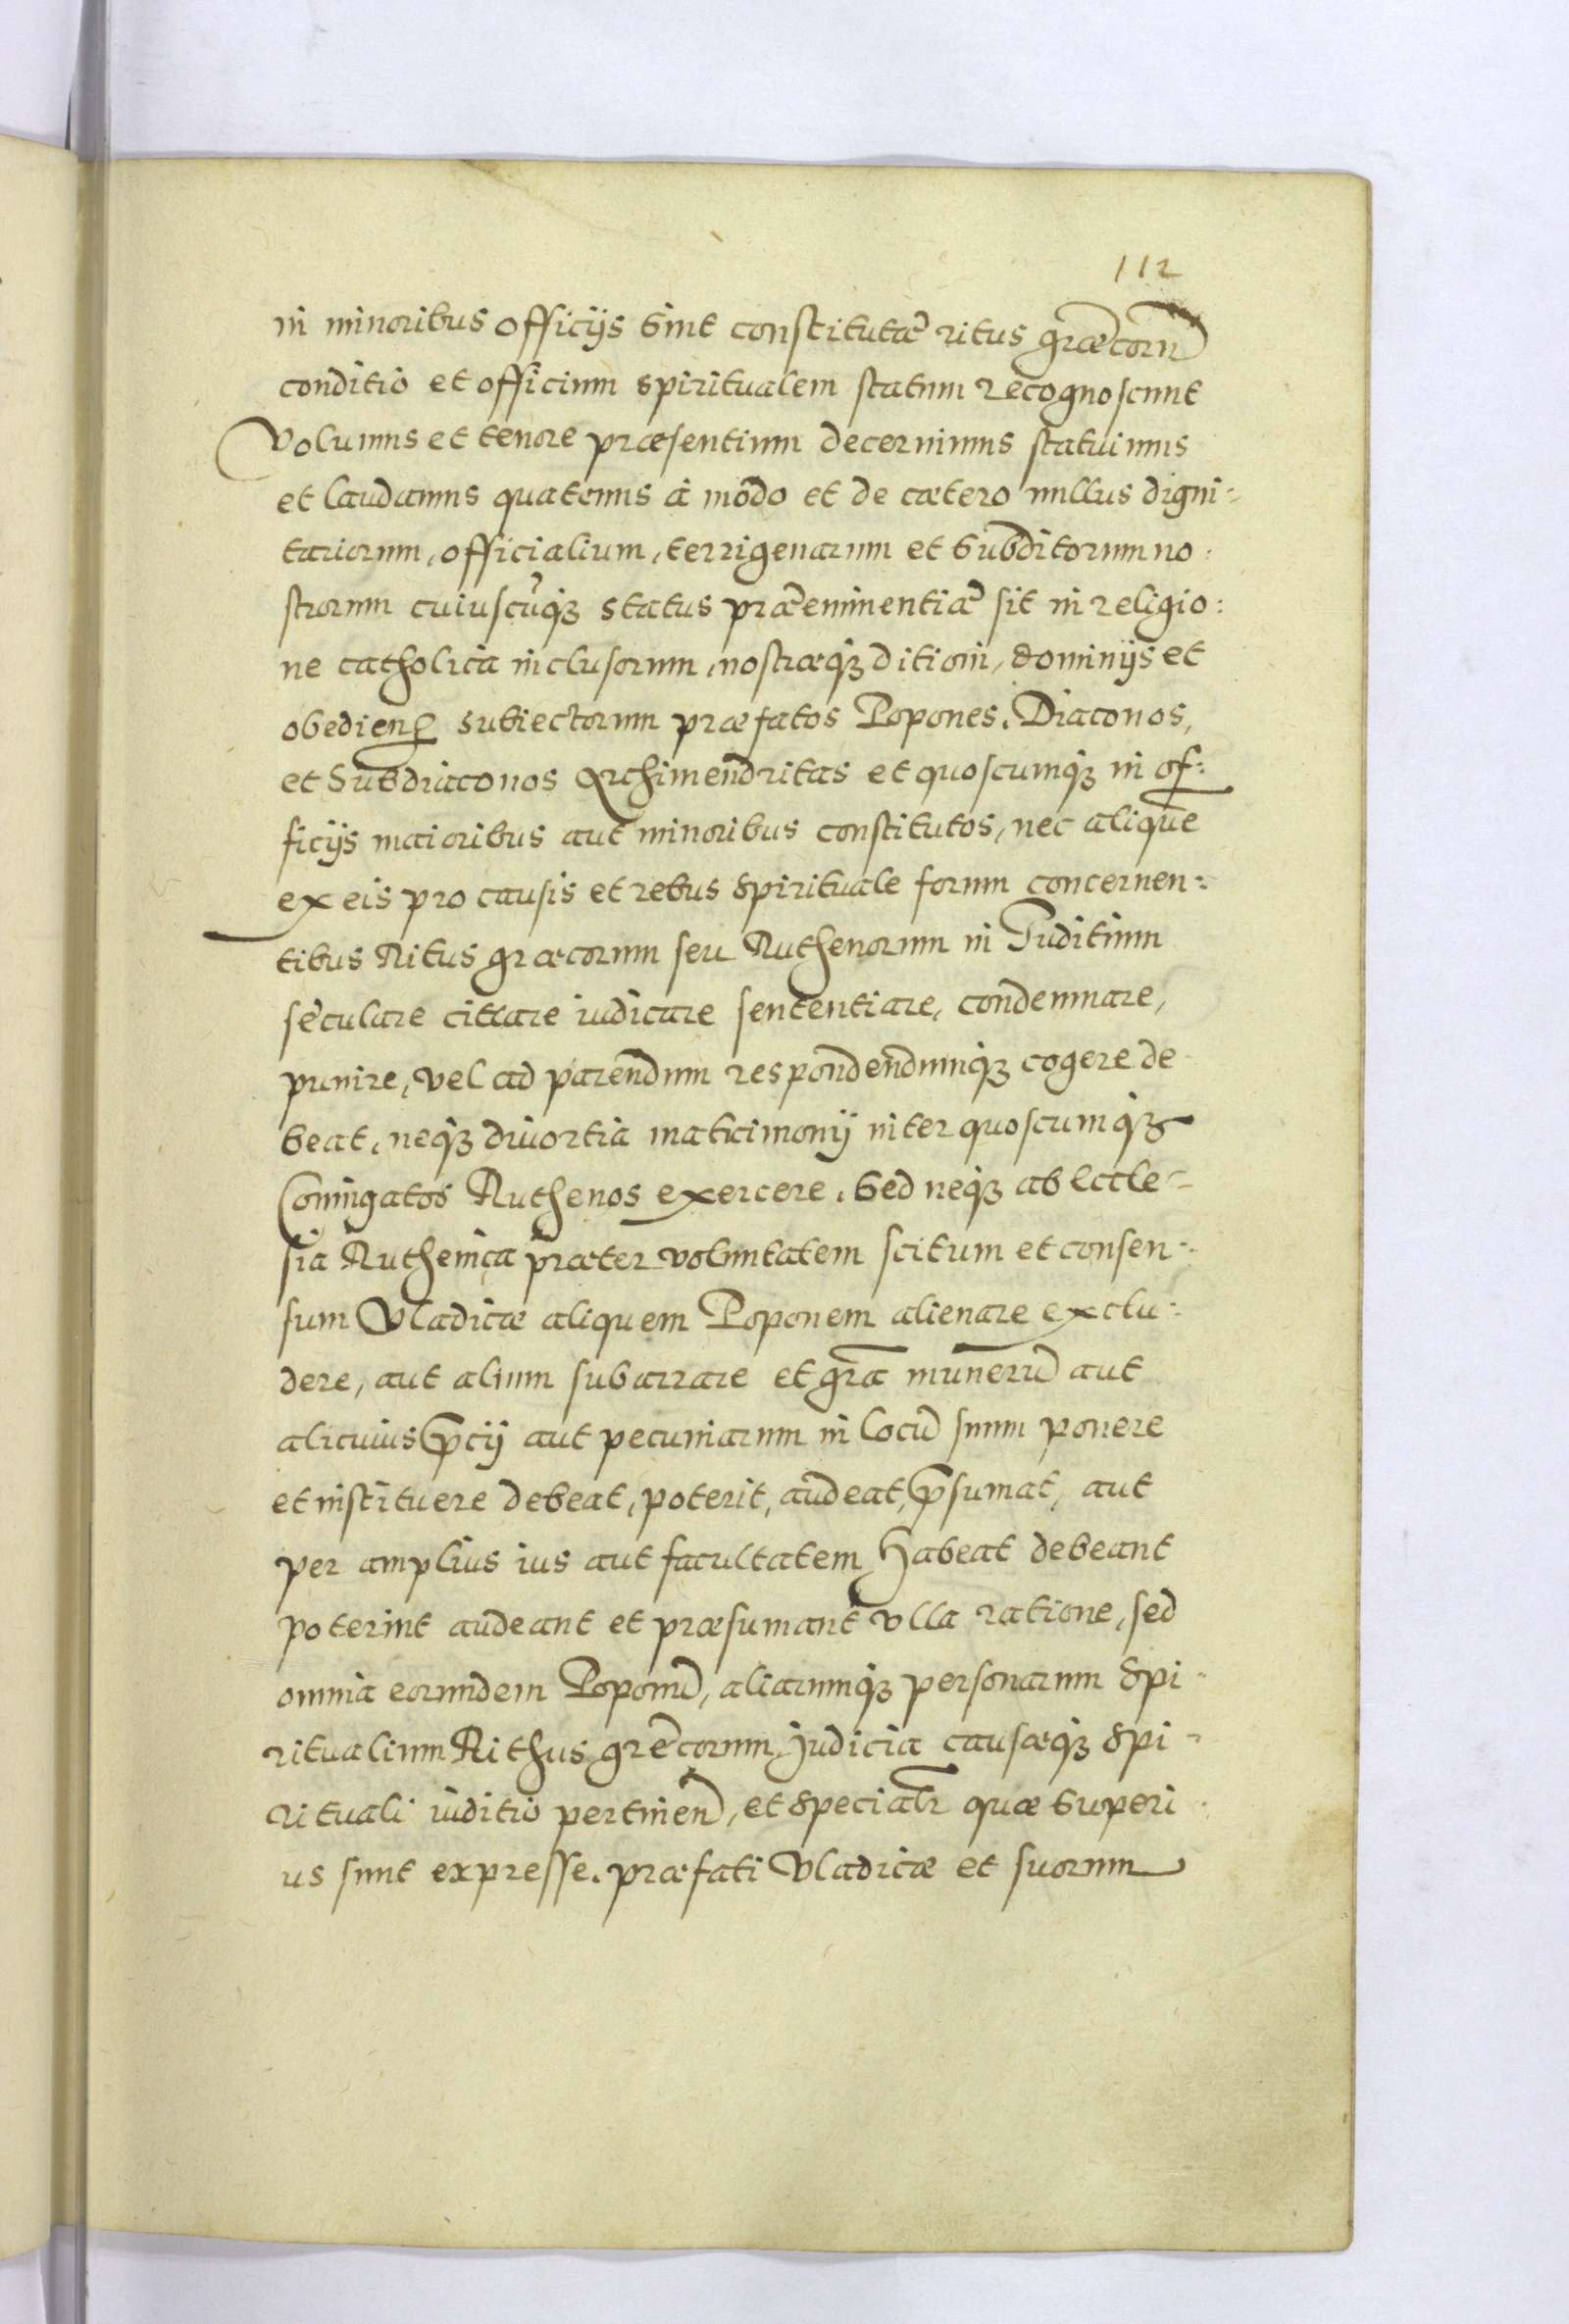 112
in minoribus officijs sint constitutæ ritus græcorū
conditio et officium spiritualem statum recognoscunt
Volumus et tenore præsentium decernimus statuimus
et laudamus quatenus à modo et de cætero nullus digni-
tariorum, officialium, terrigenarum et subditorum no-
strorum cuiuscūq3 status præeminentiæ sit in religio:
ne catholica inclusorum, nostræq3 ditioni, dominijs et
obedien: subiectorum præfatos Popones, Diaconos,
et Subdiaconos Archimendritas et quoscumq3 in of:
ficijs maioribus aut minoribus constitutos, nec aliquē
ex eis pro causis et rebus spirituale forum concernen-
tibus Ritus græcorum seu Ruthenorum in Juditium
seculare cittare iudicare sententiare, condemnare,
punire, vel ad parendum respondendumq3 cogere de-
beat, neq3 divortia matrimonij inter quoscumq3
Coniugatos Ruthenos exercere, sed neq3 ab Eccle-
sia Ruthenica præter voluntatem scitum et consen-
sum Vladicæ aliquem Poponem alienare exclu-
dere, aut alium subarrare et grā munerū aut
alicuius p̄cij aut pecuniarum in locū suum ponere
et instituere debeat, poterit, audeat, p̄sumat, aut
per amplius ius aut facultatem habeat debeant
poterint audeant et præsumant vlla ratione, sed
omnia eorundem Poponū, aliarumq3 personarum spi-
ritualium Rithus grecorum, judicia causæq3 spi-
rituali iuditio pertinen, et specialr quæ superi-
us sunt expresse. præfati Vladicæ et suorum